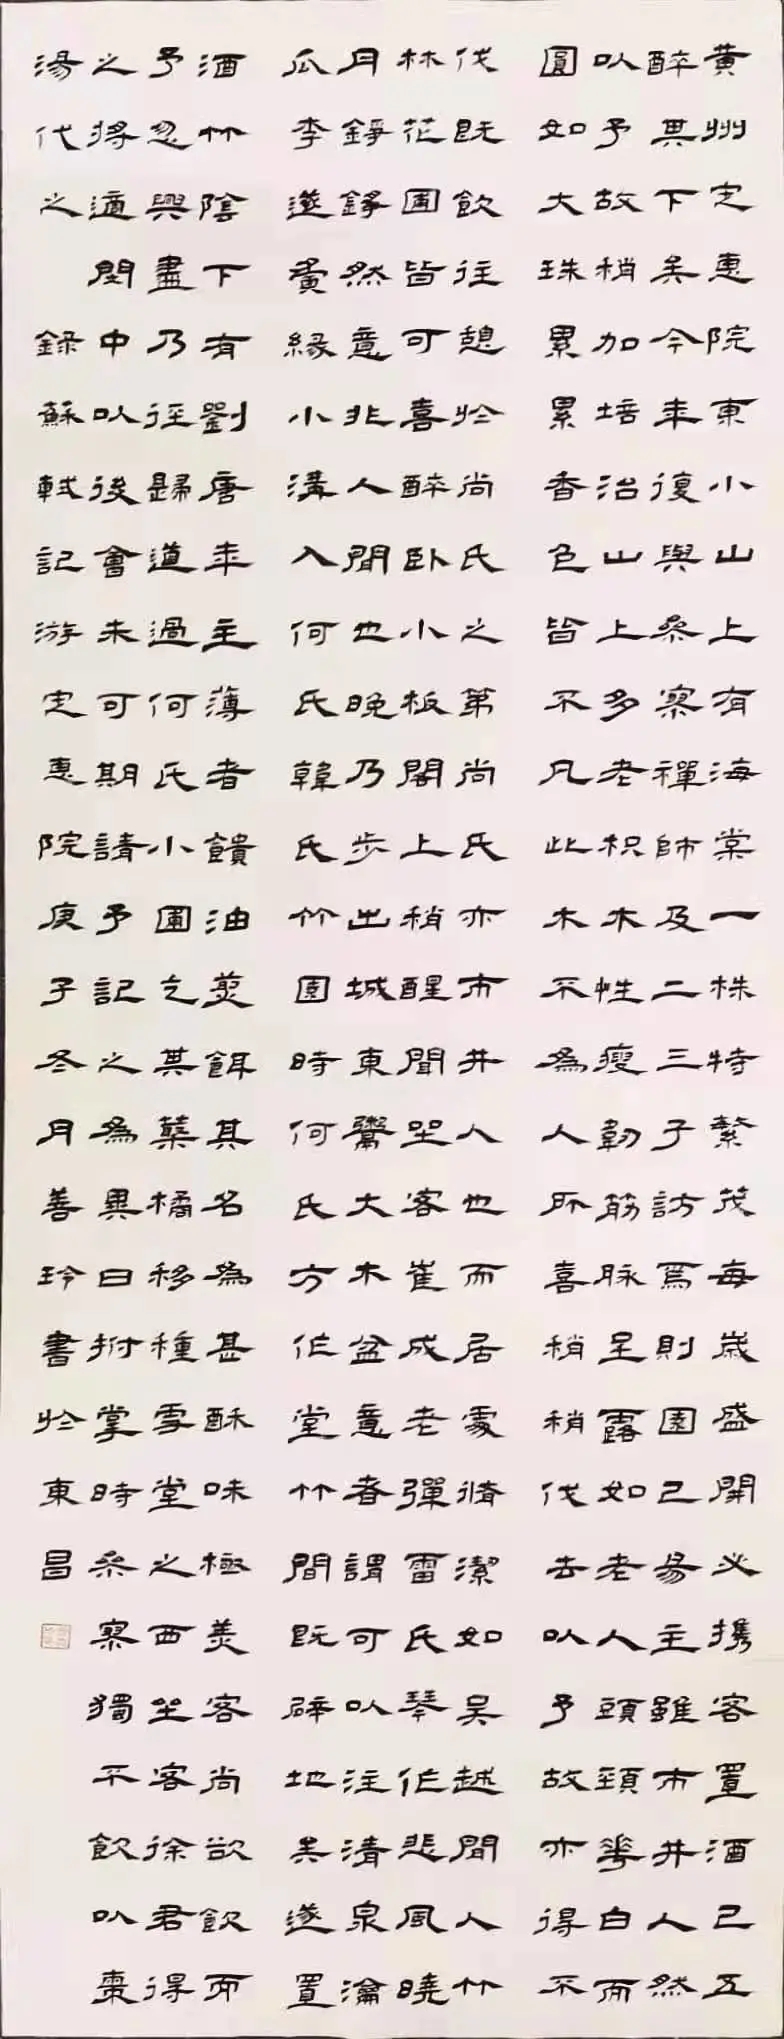 黃州定惠院東小山上有海棠一株特繁茂每歲盛開必攜客置酒已五
醉其下矣今年復與參寥禪師及二三子訪焉則園已易主雖市井人然
以予故稍加培治山上多老枳木性瘦韌筋脉呈露如老人頭頸華白而
圓如大珠累累香色皆不凡此木不為人所喜稍稍伐去以予故亦得不
伐既飲往憩於尚氏之第尚氏亦市井人也而居處脩潔如吳越間人竹
林花圃皆可喜醉臥小板閣上稍醒聞坐客崔成老彈雷氏琴作悲風曉
月錚錚然意非人間也晚乃步出城東鬻大木盆意者謂可以注清泉瀹
瓜李遂夤緣小溝入何氏韓氏竹園時何氏方作堂竹間既辟地矣遂置
酒竹陰下有劉唐年主薄者饋油煎餌其名為甚酥味極美客尚欲飲而
予忽興盡乃徑歸道過何氏小圃乞其藂橘移種雪堂之西坐客徐君得
之將適閩中以後會未可期請予記之為異日拊掌時參寥獨不飲以棗
湯代之 錄蘇軾記游定惠院庚子冬月善玲書於東昌